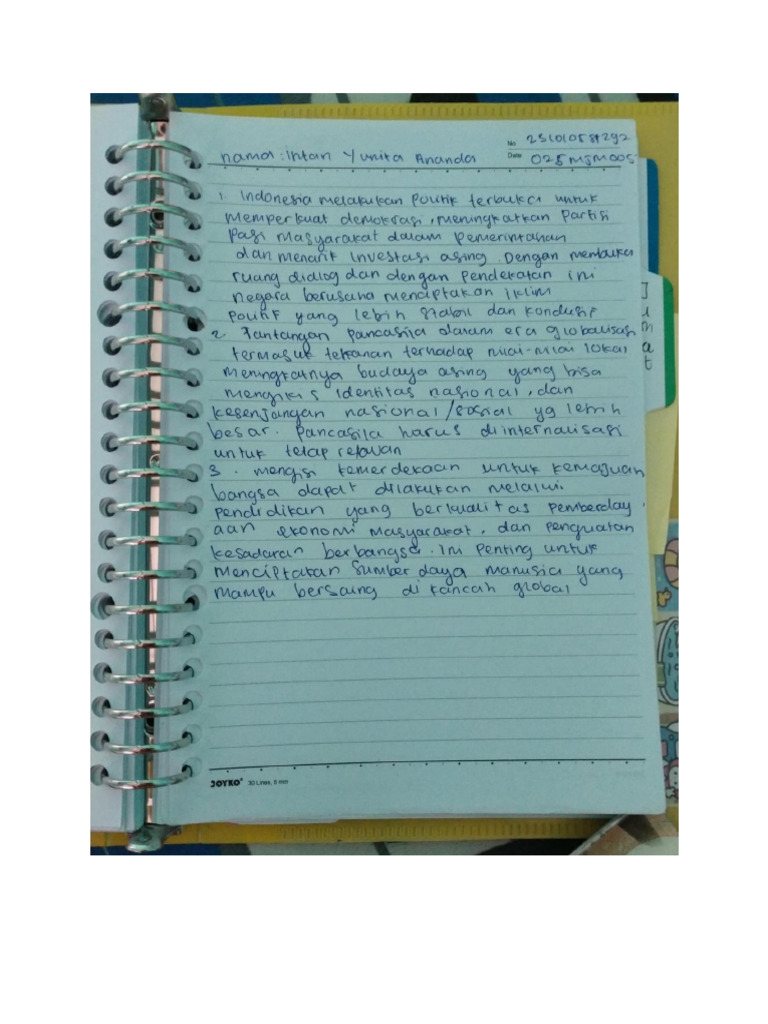 No 251010584292
nama : Intan Yunita Ananda
Date 025MJM005
1. Indonesia melakukan politik terbuka untuk
memperkuat demokrasi, meningkatkan Partisi
pasi masyarakat dalam pemerintahan
dan menarik Investasi asing. Dengan membuka
ruang dialog dan dengan pendekatan ini
negara berusaha menciptakan iklim
politik yang lebih stabil dan kondusif
2. Tantangan pancasila dalam era globalisasi
termasuk tekanan terhadap nilai-nilai lokal
meningkatnya budaya asing yang bisa
mengikis identitas nasional, dan
kesenjangan nasional/sosial yg lebih
besar. Pancasila harus diinternalisasi
untuk tetap relavan
3. mengisi kemerdekaan untuk kemajuan
bangsa dapat dilakukan melalui.
pendidikan yang berkualitas pemberday
aan ekonomi masyarakat, dan penguatan
kesadaran berbangsa. Ini penting untuk
menciptakan sumber daya manusia yang
mampu bersaing di kancah global
JOYKO 30 Lines, 8 mm
Jumat